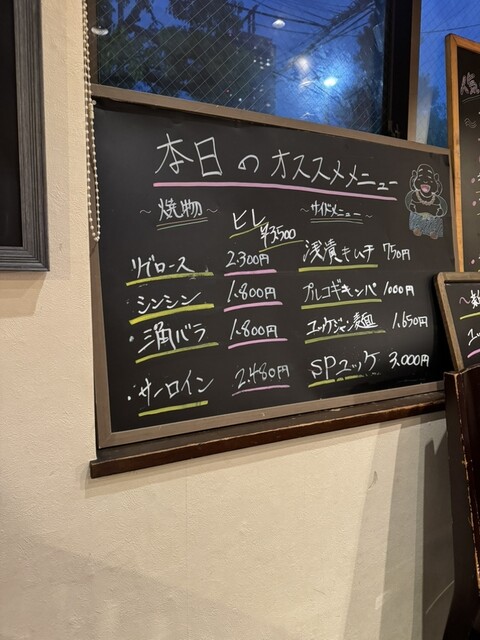 本日のオススメメニュー
～焼物～
ヒレ ¥3500
リブロース 2.300円
シンシン 1.800円
・三角バラ 1.800円
・サーロイン 2.480円
～サイドメニュー～
浅漬キムチ 750円
プルコギキンパ 1000円
ユッケジャン麺 1.650円
SPユッケ 3.000円